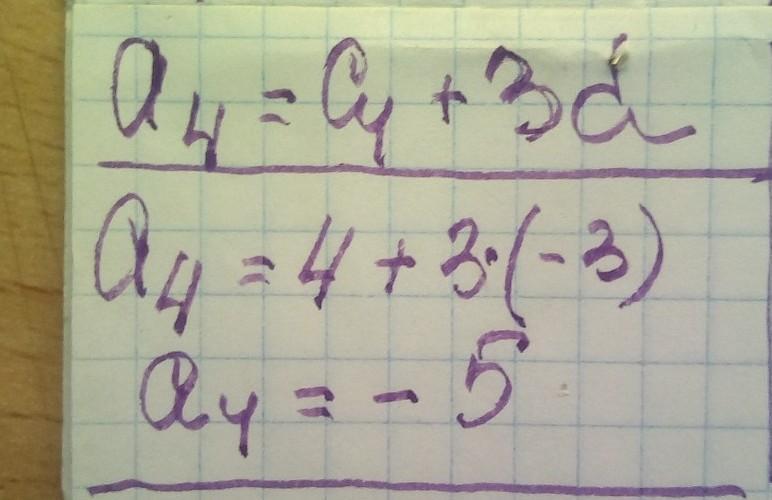 a₄ = a₁ + 3d
a₄ = 4 + 3·(-3)
a₄ = - 5